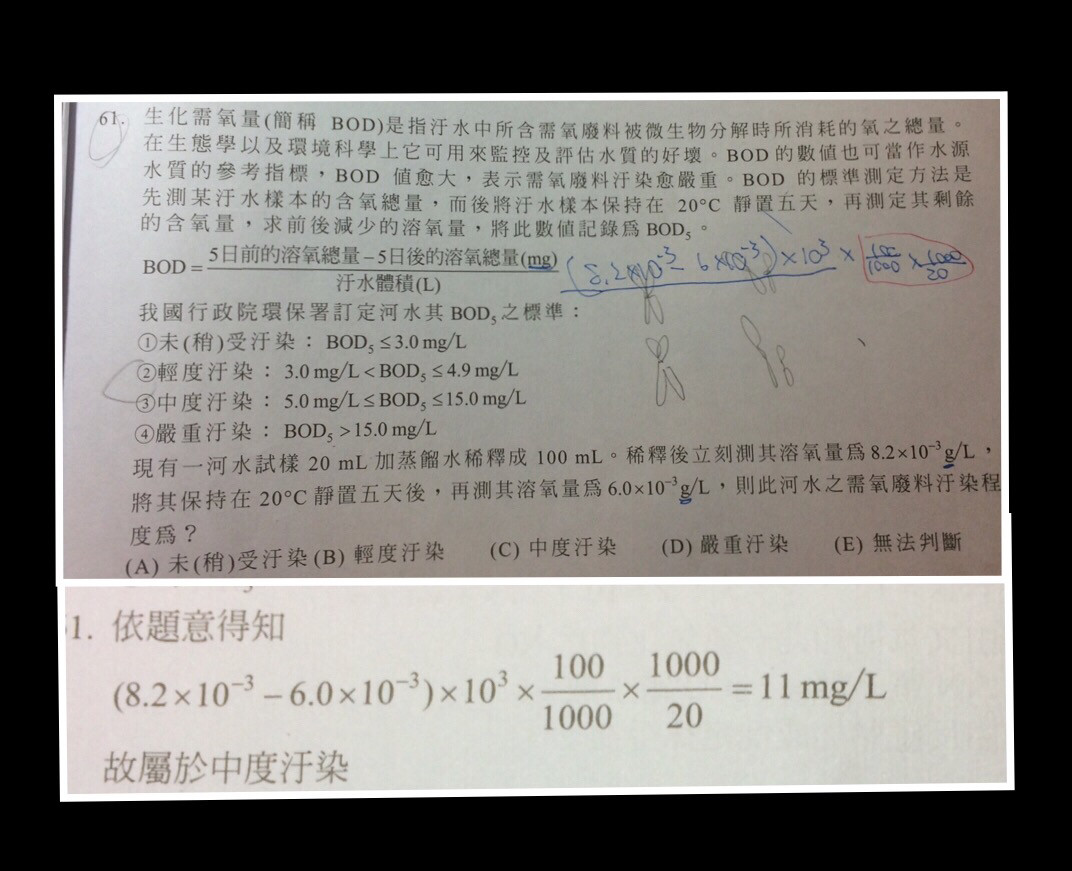 61. 生化需氧量(簡稱 BOD)是指汙水中所含需氧廢料被微生物分解時所消耗的氧之總量。
在生態學以及環境科學上它可用來監控及評估水質的好壞。BOD 的數值也可當作水源
水質的參考指標，BOD 值愈大，表示需氧廢料汙染愈嚴重。BOD 的標準測定方法是
先測某汙水樣本的含氧總量，而後將汙水樣本保持在 20°C 靜置五天，再測定其剩餘
的含氧量，求前後減少的溶氧量，將此數值記錄爲 BOD₅。
BOD = 5日前的溶氧總量－5日後的溶氧總量(mg) / 汙水體積(L)
(8.2×10⁻³ - 6×10⁻³)×10³ × 100/1000 × 1000/20
我國行政院環保署訂定河水其 BOD₅ 之標準：
①未(稍)受汙染： BOD₅ ≤ 3.0 mg/L
②輕度汙染： 3.0 mg/L < BOD₅ ≤ 4.9 mg/L
③中度汙染： 5.0 mg/L ≤ BOD₅ ≤ 15.0 mg/L
④嚴重汙染： BOD₅ > 15.0 mg/L
現有一河水試樣 20 mL 加蒸餾水稀釋成 100 mL。稀釋後立刻測其溶氧量爲 8.2×10⁻³ g/L，
將其保持在 20°C 靜置五天後，再測其溶氧量爲 6.0×10⁻³ g/L，則此河水之需氧廢料汙染程
度爲？
(A) 未(稍)受汙染 (B) 輕度汙染 (C) 中度汙染 (D) 嚴重汙染 (E) 無法判斷
1. 依題意得知
(8.2×10⁻³ − 6.0×10⁻³)×10³ × 100/1000 × 1000/20 = 11 mg/L
故屬於中度汙染